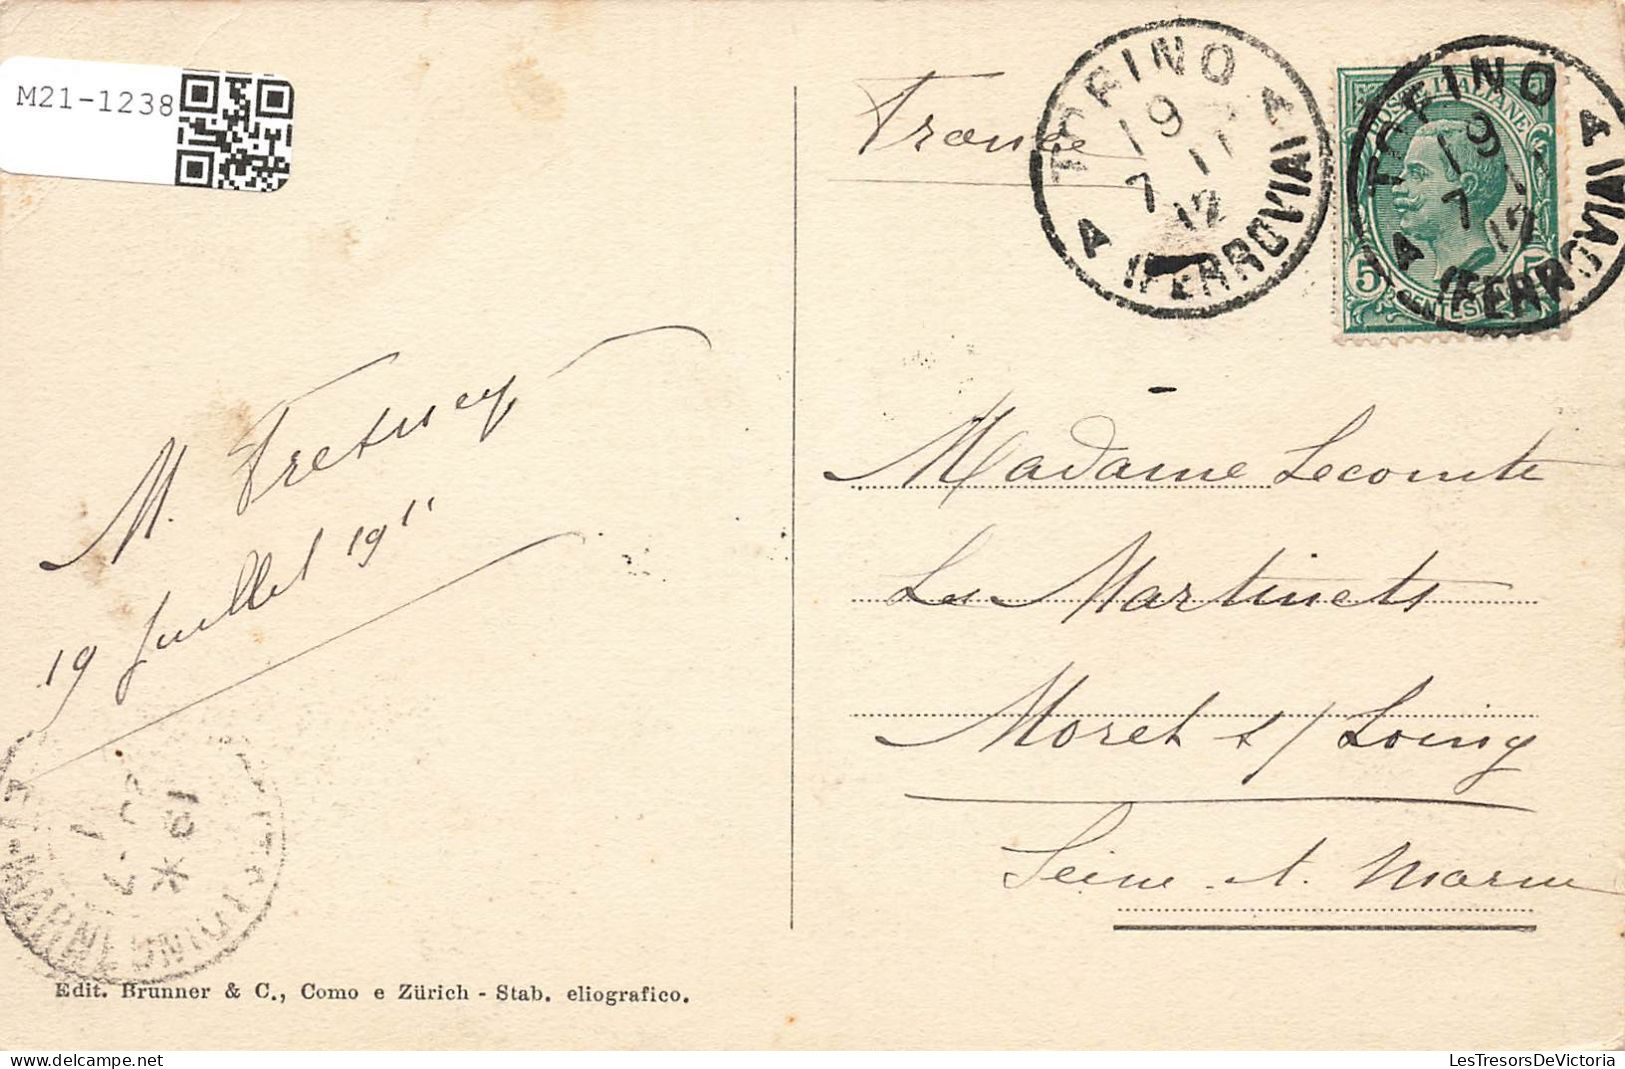 M21-1238
France
TORINO
19
7 11
12
A (FERROVIA) A
POSTE ITALIANE
5
CENTESIMI
TORINO
19
7
12
A (FERROVIA) A
M.
19 Juillet 1911
Madame Lecomte
Les Martinets
Moret s/ Loing
Seine et Marne
19
Edit. Brunner & C., Como e Zürich - Stab. eliografico.
LesTresorsDeVictoria